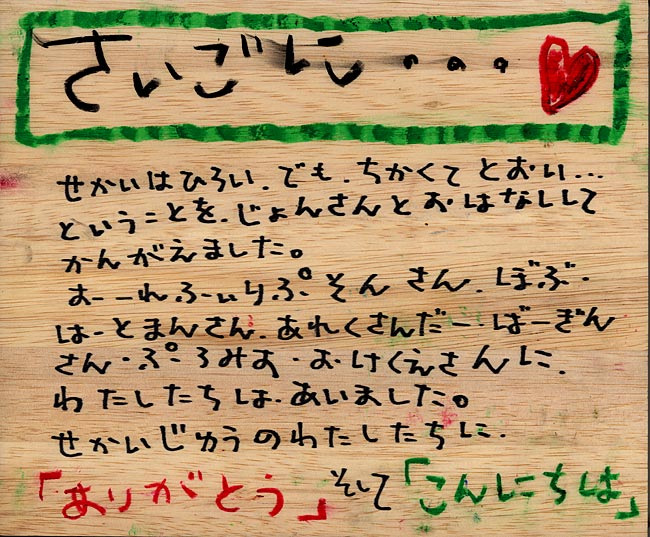 さいごに・・・
せかいはひろい.でも.ちかくてとおい...
ということを.じょんさんとおはなしして
かんがえました。
おーれふぃりぷそんさん.ぼぶ・
はーとまんさん.あれくさんだー・ばーざん
さん・ぷろみお・おけくえさんに.
わたしたちは.あいました。
せかいじゅうのわたしたちに.
「ありがとう」そして「こんにちは」